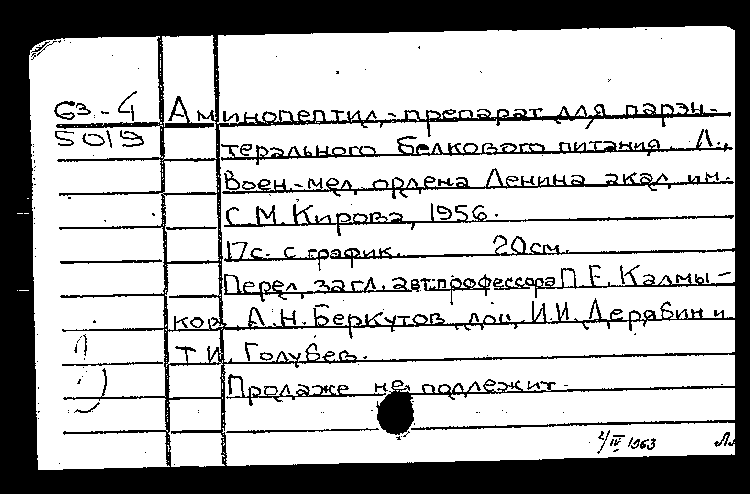 63-4 Аминопептид,-препарат для парэн-
5019 терального белкового питания. Л.,
Воен.-мед. ордена Ленина акад. им.
С.М. Кирова, 1956.
17с. с график. 20см.
Перед загл. авт: профессора П.Е. Калмы-
ков, А.Н. Беркутов, доц. И.И. Дерябин и
Т.И. Голубев.
Продаже не подлежит.
4/IV 1963